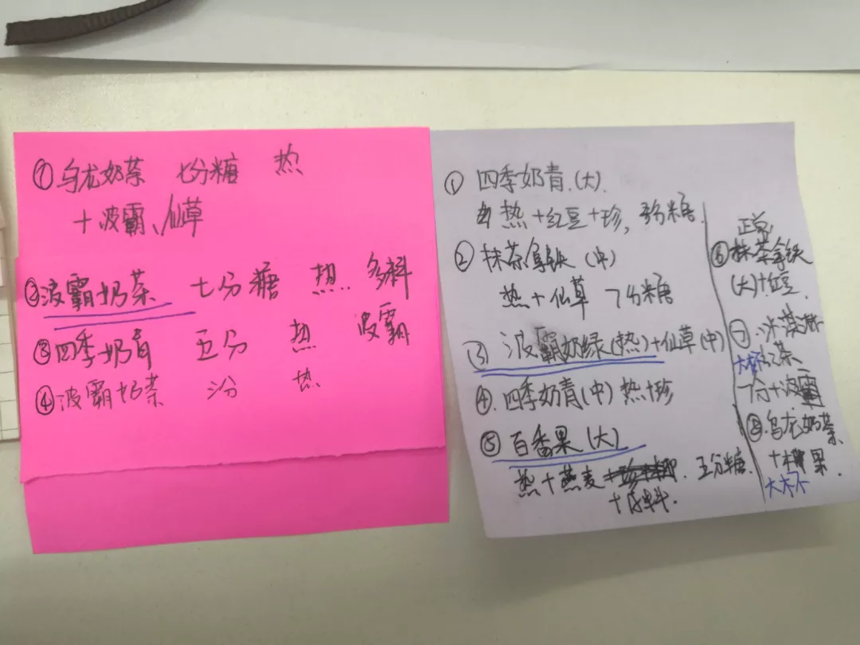 ①乌龙奶茶 七分糖 热
+波霸、仙草
②波霸奶茶 七分糖 热 多料
波霸
③四季奶青 五分 热
④波霸奶茶 热
① 四季奶青.(大).
热+红豆+珍, 糖
② 抹茶拿铁 (中)
热+仙草 7分糖
③ 波霸奶绿(热)+仙草(中)
④.四季奶青(中) 热+珍
⑤ 百香果(大)
热+燕麦 五分糖.
+底料.
正常
⑥抹茶拿铁
(大)+红豆.
茶
+波霸
⑧.乌龙奶茶
+椰果.